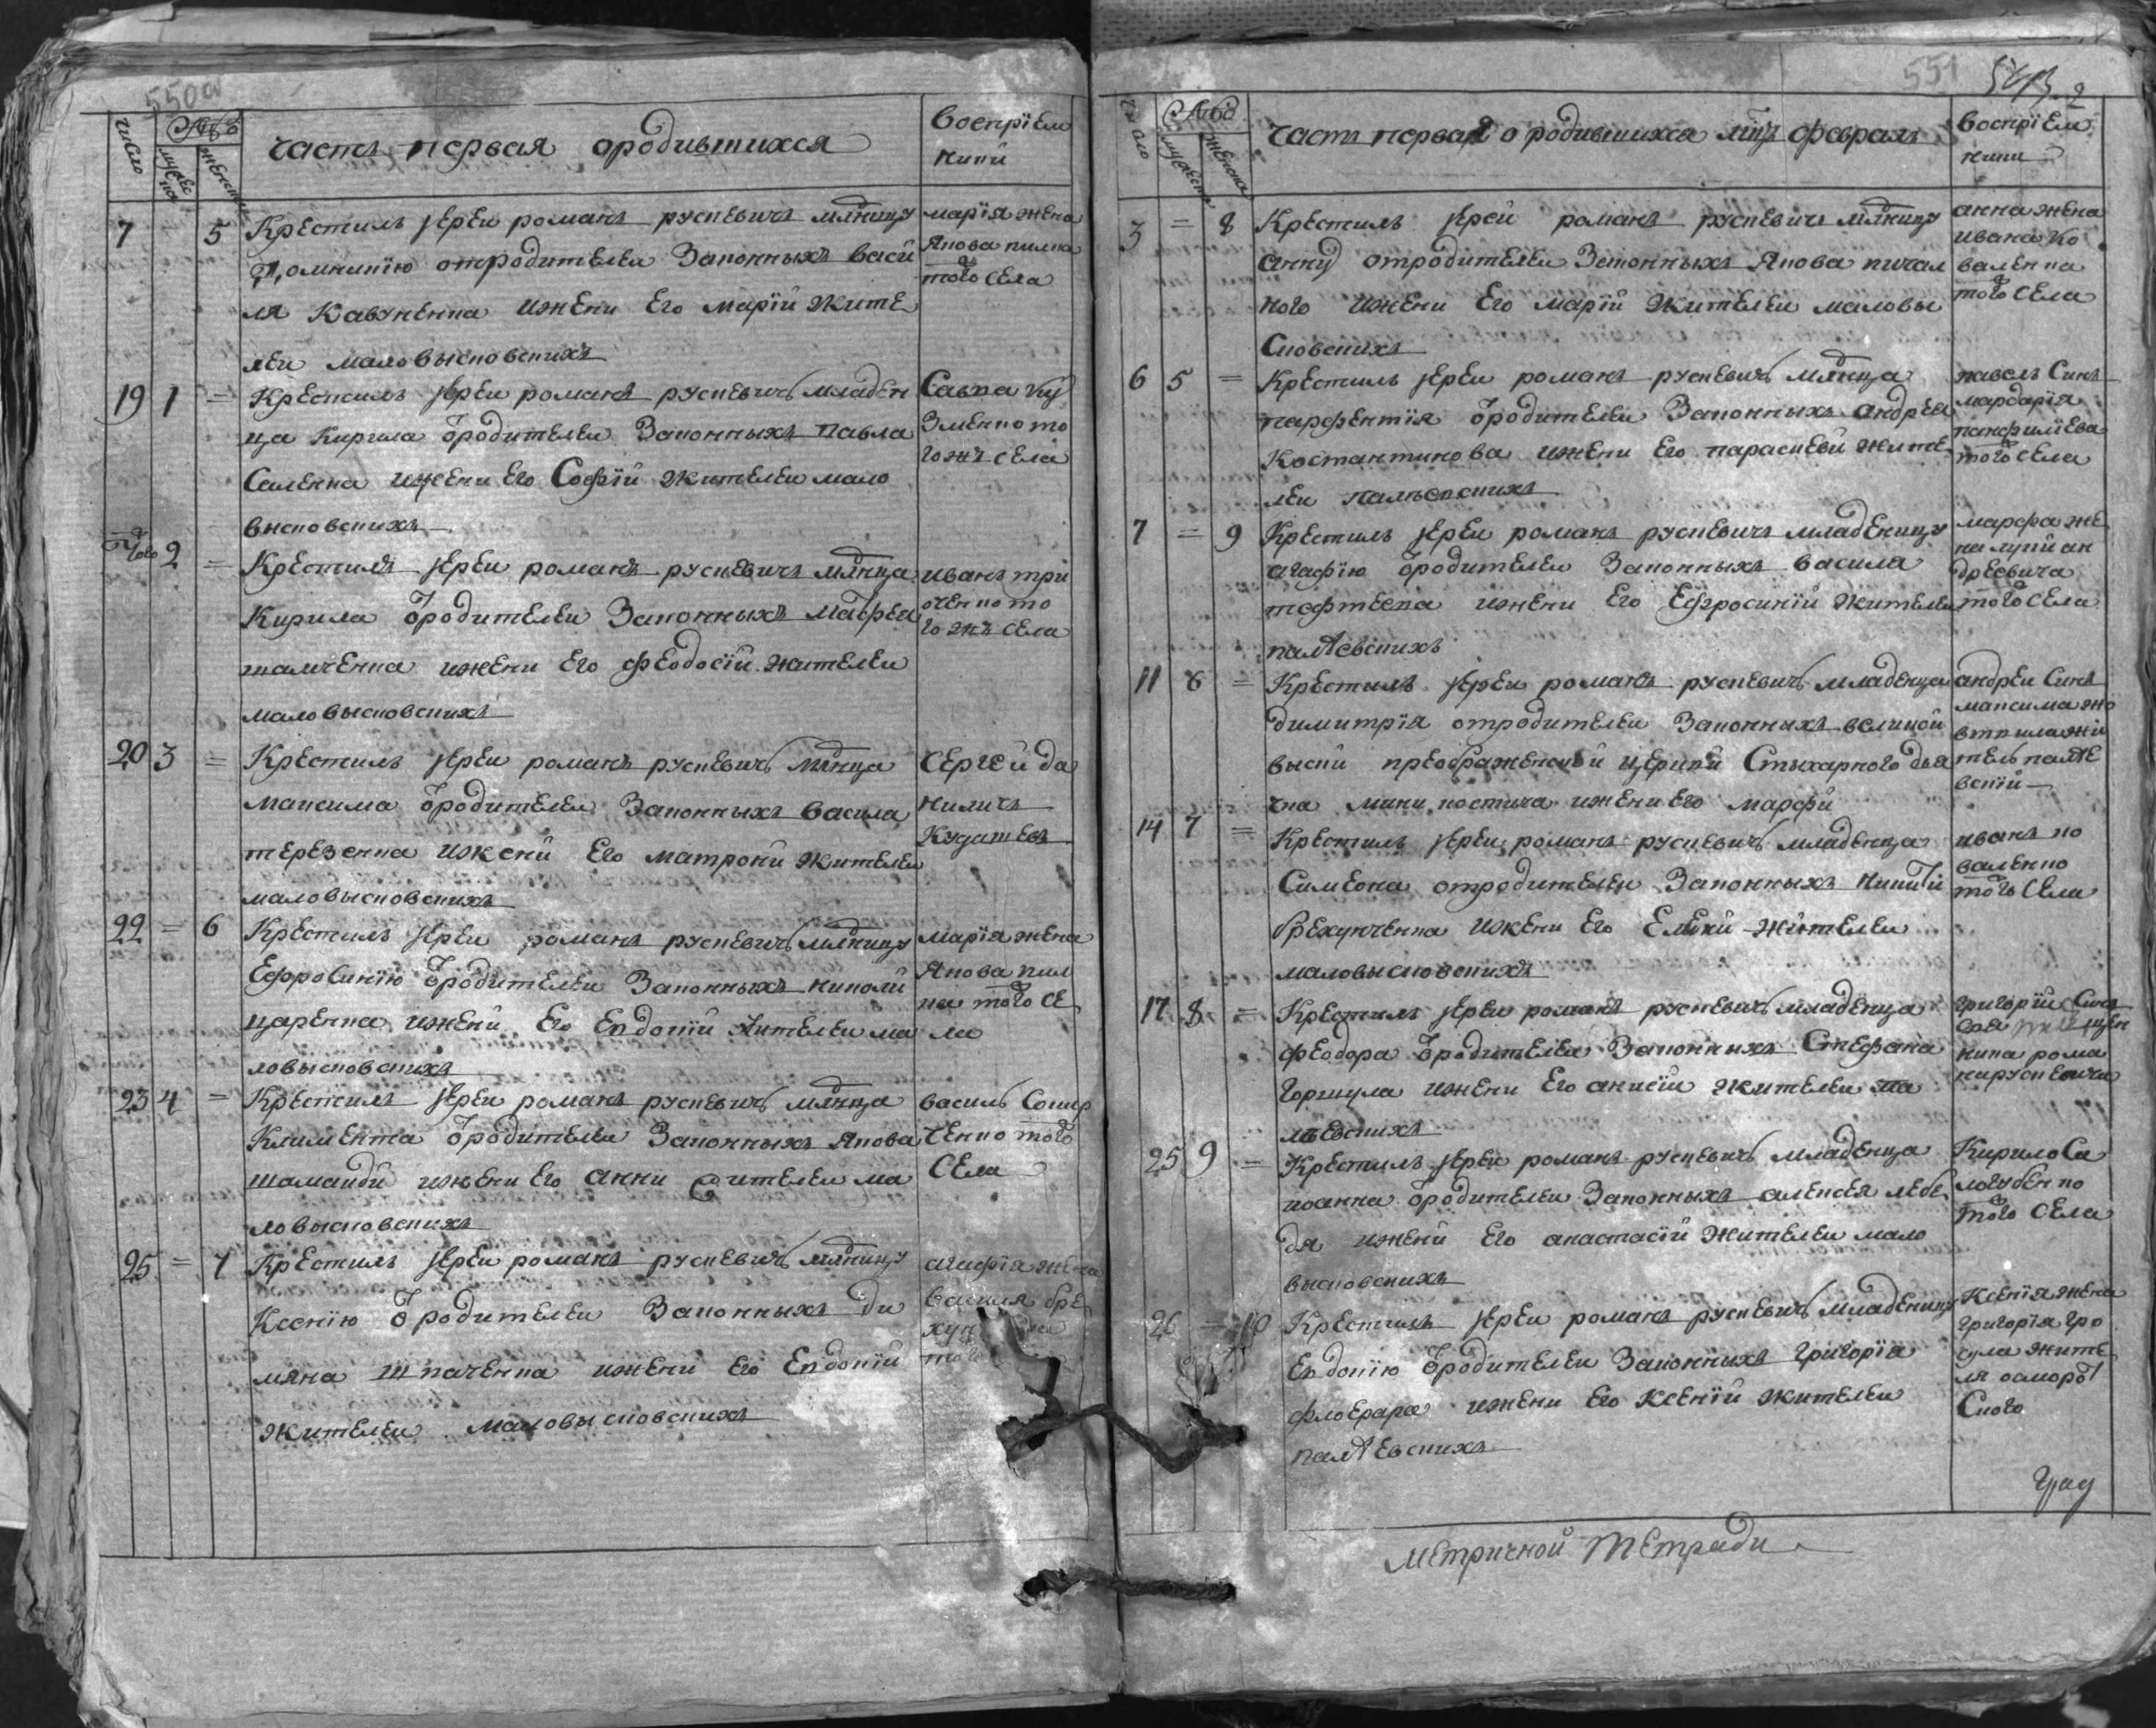 550
число
мужеска
женска
часть первая ородившихся
воспріем
ники
7 5 Крестилъ іерей романъ рускевичъ мл҃дницу
домникію отродителей Законныхъ васи
ля Кавуненка ижени Его маріи жите
лей маловысковскихъ
марія жена
Якова пилка
того села
19 1 = Крестилъ іерей романъ рускевичъ младен
ца Кирила ѿродителей Законныхъ павла
Саленка ижени Его Софіи жителей мало
высковскихъ
Савка Ку
зменко то
гожъ села
того 2 = Крестилъ іерей романъ рускевичъ мл҃днца
Кирила ѿродителей Законныхъ матфея
талченка ижени Его феодосіи жителей
маловысковскихъ
иванъ три
оченко то
гожъ села
20 3 = Крестилъ іерей романъ рускевичъ мл҃днца
максима ѿродителей Законныхъ васила
терезенка ижени Его матрони жителей
маловысковскихъ
СЕргей да
ниличъ
Кудашевъ
22 = 6 Крестилъ іерей романъ рускевичъ мл҃дницу
Ефросинію ѿродителей Законныхъ николи
царенка ижени Его Евдокіи жителей ма
ловысковскихъ
марія жена
Якова пил
ка того се
ла
23 4 = Крестилъ іерей романъ рускевичъ мл҃днца
Климента ѿродителей Законныхъ Якова
шаманди ижени Его анни жителей ма
ловысковскихъ
василь Сошир
ченко того
СЕла
25 = 7 Крестилъ іерей романъ рускевичъ мл҃дницу
Ксенію ѿродителей Законныхъ де
мяна шпаченка ижени Его Евдокіи
жителей маловысковскихъ
агафія жена
василя бре
того
551
число
мужеска
женска
часть первая о родившихся мц҃ъ февраль
воспріем
ники
3 = 8 Крестилъ іерей романъ рускевичъ мл҃дницу
анну отродителей Законныхъ Якова кичал
ного ижени Его маріи жителей маловы
Сковскихъ
анна жена
ивана ко
валенка
того СЕла
6 5 = Крестилъ іерей романъ рускевичъ мл҃днца
парфентія ѿродителей Законныхъ андрея
Костантинова ижени Его параскеви жите
лей палѣевскихъ
павелъ Синъ
мардарія
панфиліева
того села
7 = 9 Крестилъ іерей романъ рускевичъ младеницу
агафію ѿродителей Законныхъ васила
тефтеева ижени Его Ефросиніи жителей
палѣевскихъ
марфа же
на луки ан
дреевича
того СЕла
11 6 = Крестилъ іерей романъ рускевичъ младенца
димитрія отродителей Законныхъ великой
виски преображенской церкви Стихарного дья
чка мики костича ижени Его марфи
андрей Синъ
максима жо
втила жи
тель палѣе
вский
14 7 = Крестилъ іерей романъ рускевичъ младенца
Симеона отродителей Законныхъ никити
брехунченка ижени Его Елени жителей
маловысковскихъ
иванъ ко
валенко
того СЕла
17 8 = Крестилъ іерей романъ рускевичъ младенца
феодора ѿродителей Законныхъ Стефана
Горкула ижени Его анисіи жителей па
лѣевскихъ
григорій Синъ
священ
ника рома
на рускевича
25 9 = Крестилъ іерей романъ рускевичъ младенца
иоанна ѿродителей Законныхъ алексея лебе
дя ижени Его анастасіи жителей мало
высковскихъ
Кирило Са
логубенко
того СЕла
26 = 10 Крестилъ іерей романъ рускевичъ младеницу
Евдокію ѿродителей Законнихъ григорія
флоерара ижени Его Ксеніи жителей
палѣевскихъ
Ксенія жена
григорія гро
сула жите
ля
Ского
метричной ТЕтради